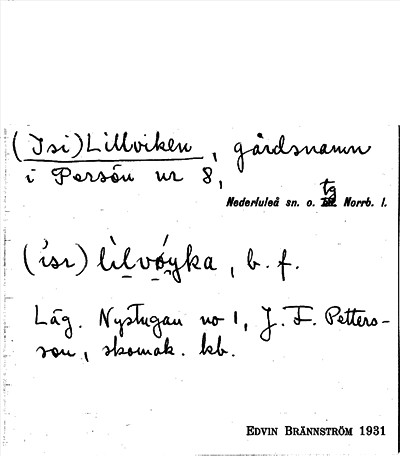 (Isi)Lillviken, gårdsnamn
i Persön nr 8,
Nederluleå sn. o. tg Norrb. l.
(i̓sr) lìlvǫ́y̨ka, b. f.
Läg. Nystugan no 1, J. F. Petters-
son, skomak. kb.
EDVIN BRÄNNSTRÖM 1931